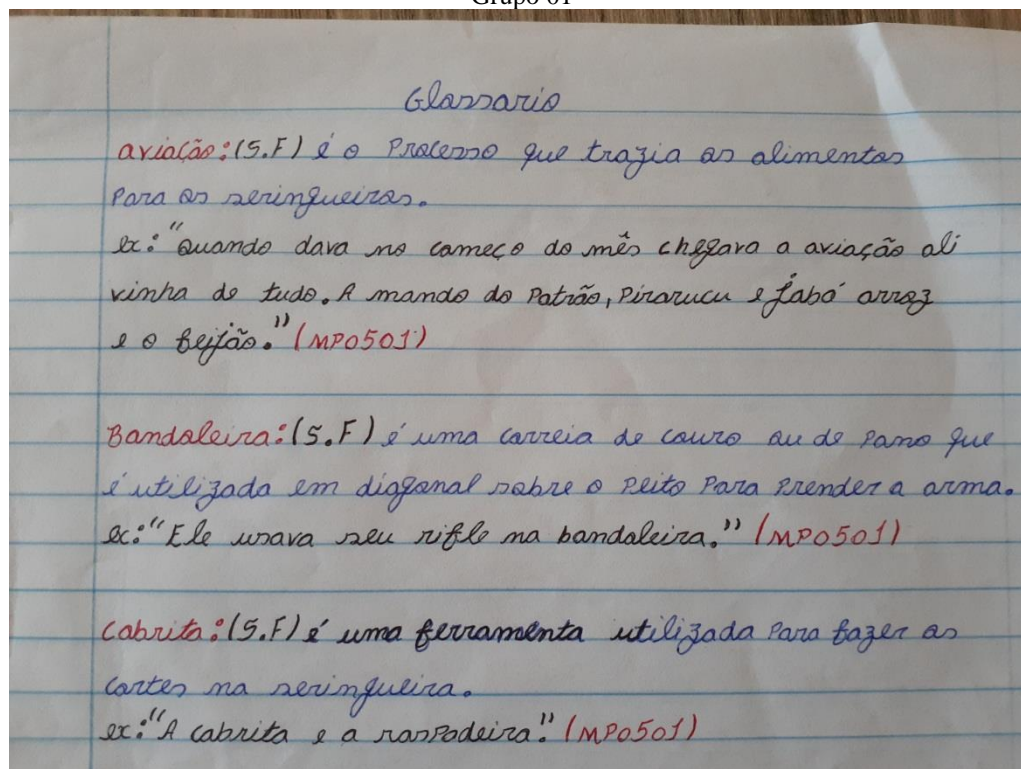 Grupo 01
Glossario
aviação: (S.F) é o Processo que trazia os alimentos
Para os seringueiros.
ex: "Quando dava no começo do mês chegava a aviação ali
vinha de tudo. A mando do Patrão, Pirarucu e jabá arroz
e o feijão." (MP0501)
Bandoleira: (S.F) é uma correia de couro ou de Pano que
é utilizada em diagonal sobre o Peito Para Prender a arma.
ex: "Ele usava seu rifle na bandoleira." (MP0501)
Cabrita: (S.F) é uma ferramenta utilizada Para fazer os
cortes na seringueira.
ex: "A cabrita e a raspadeira." (MP0501)